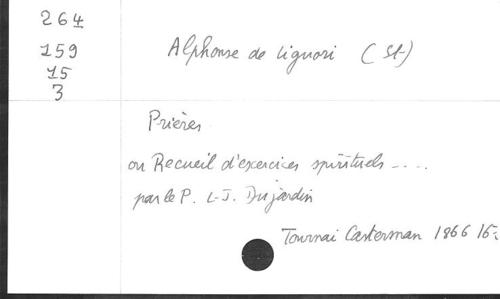 264
159
15
3
Alphonse de Liguori (St)
Prières
ou Recueil d'exercices spirituels ....
par le P. L-J. Dujardin
Tournai Casterman 1866 16: